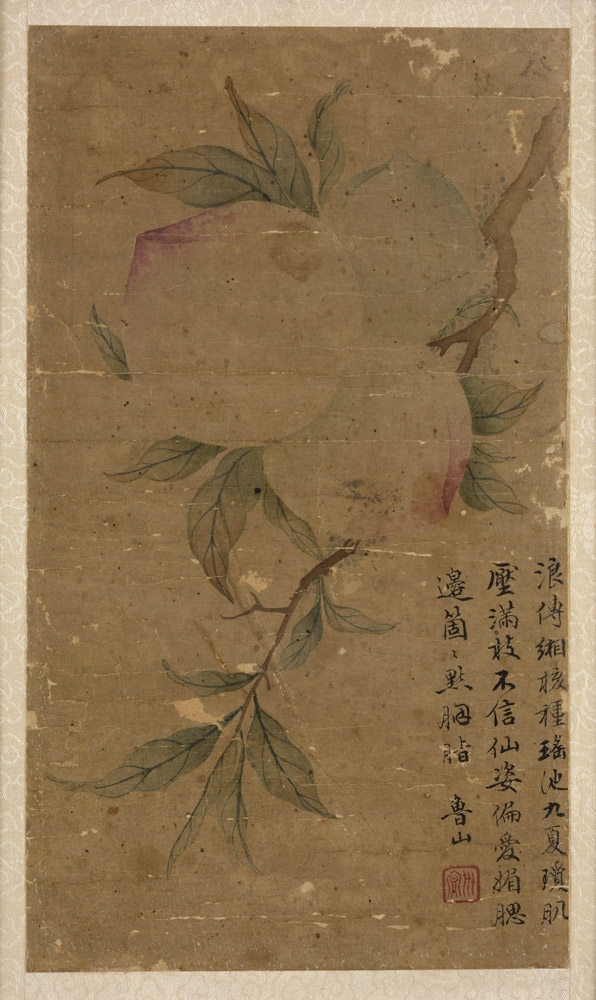 浪傳緗核種瑤池九夏瓊肌
壓滿枝不信仙姿偏愛媚腮
邊箇〻點胭脂
魯山